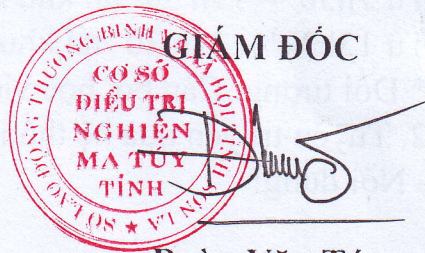 GIÁM ĐỐC
SỞ LAO ĐỘNG THƯƠNG BINH VÀ XÃ HỘI TỈNH SƠN LA ★
CƠ SỞ
ĐIỀU TRỊ
NGHIỆN
MA TÚY
TỈNH